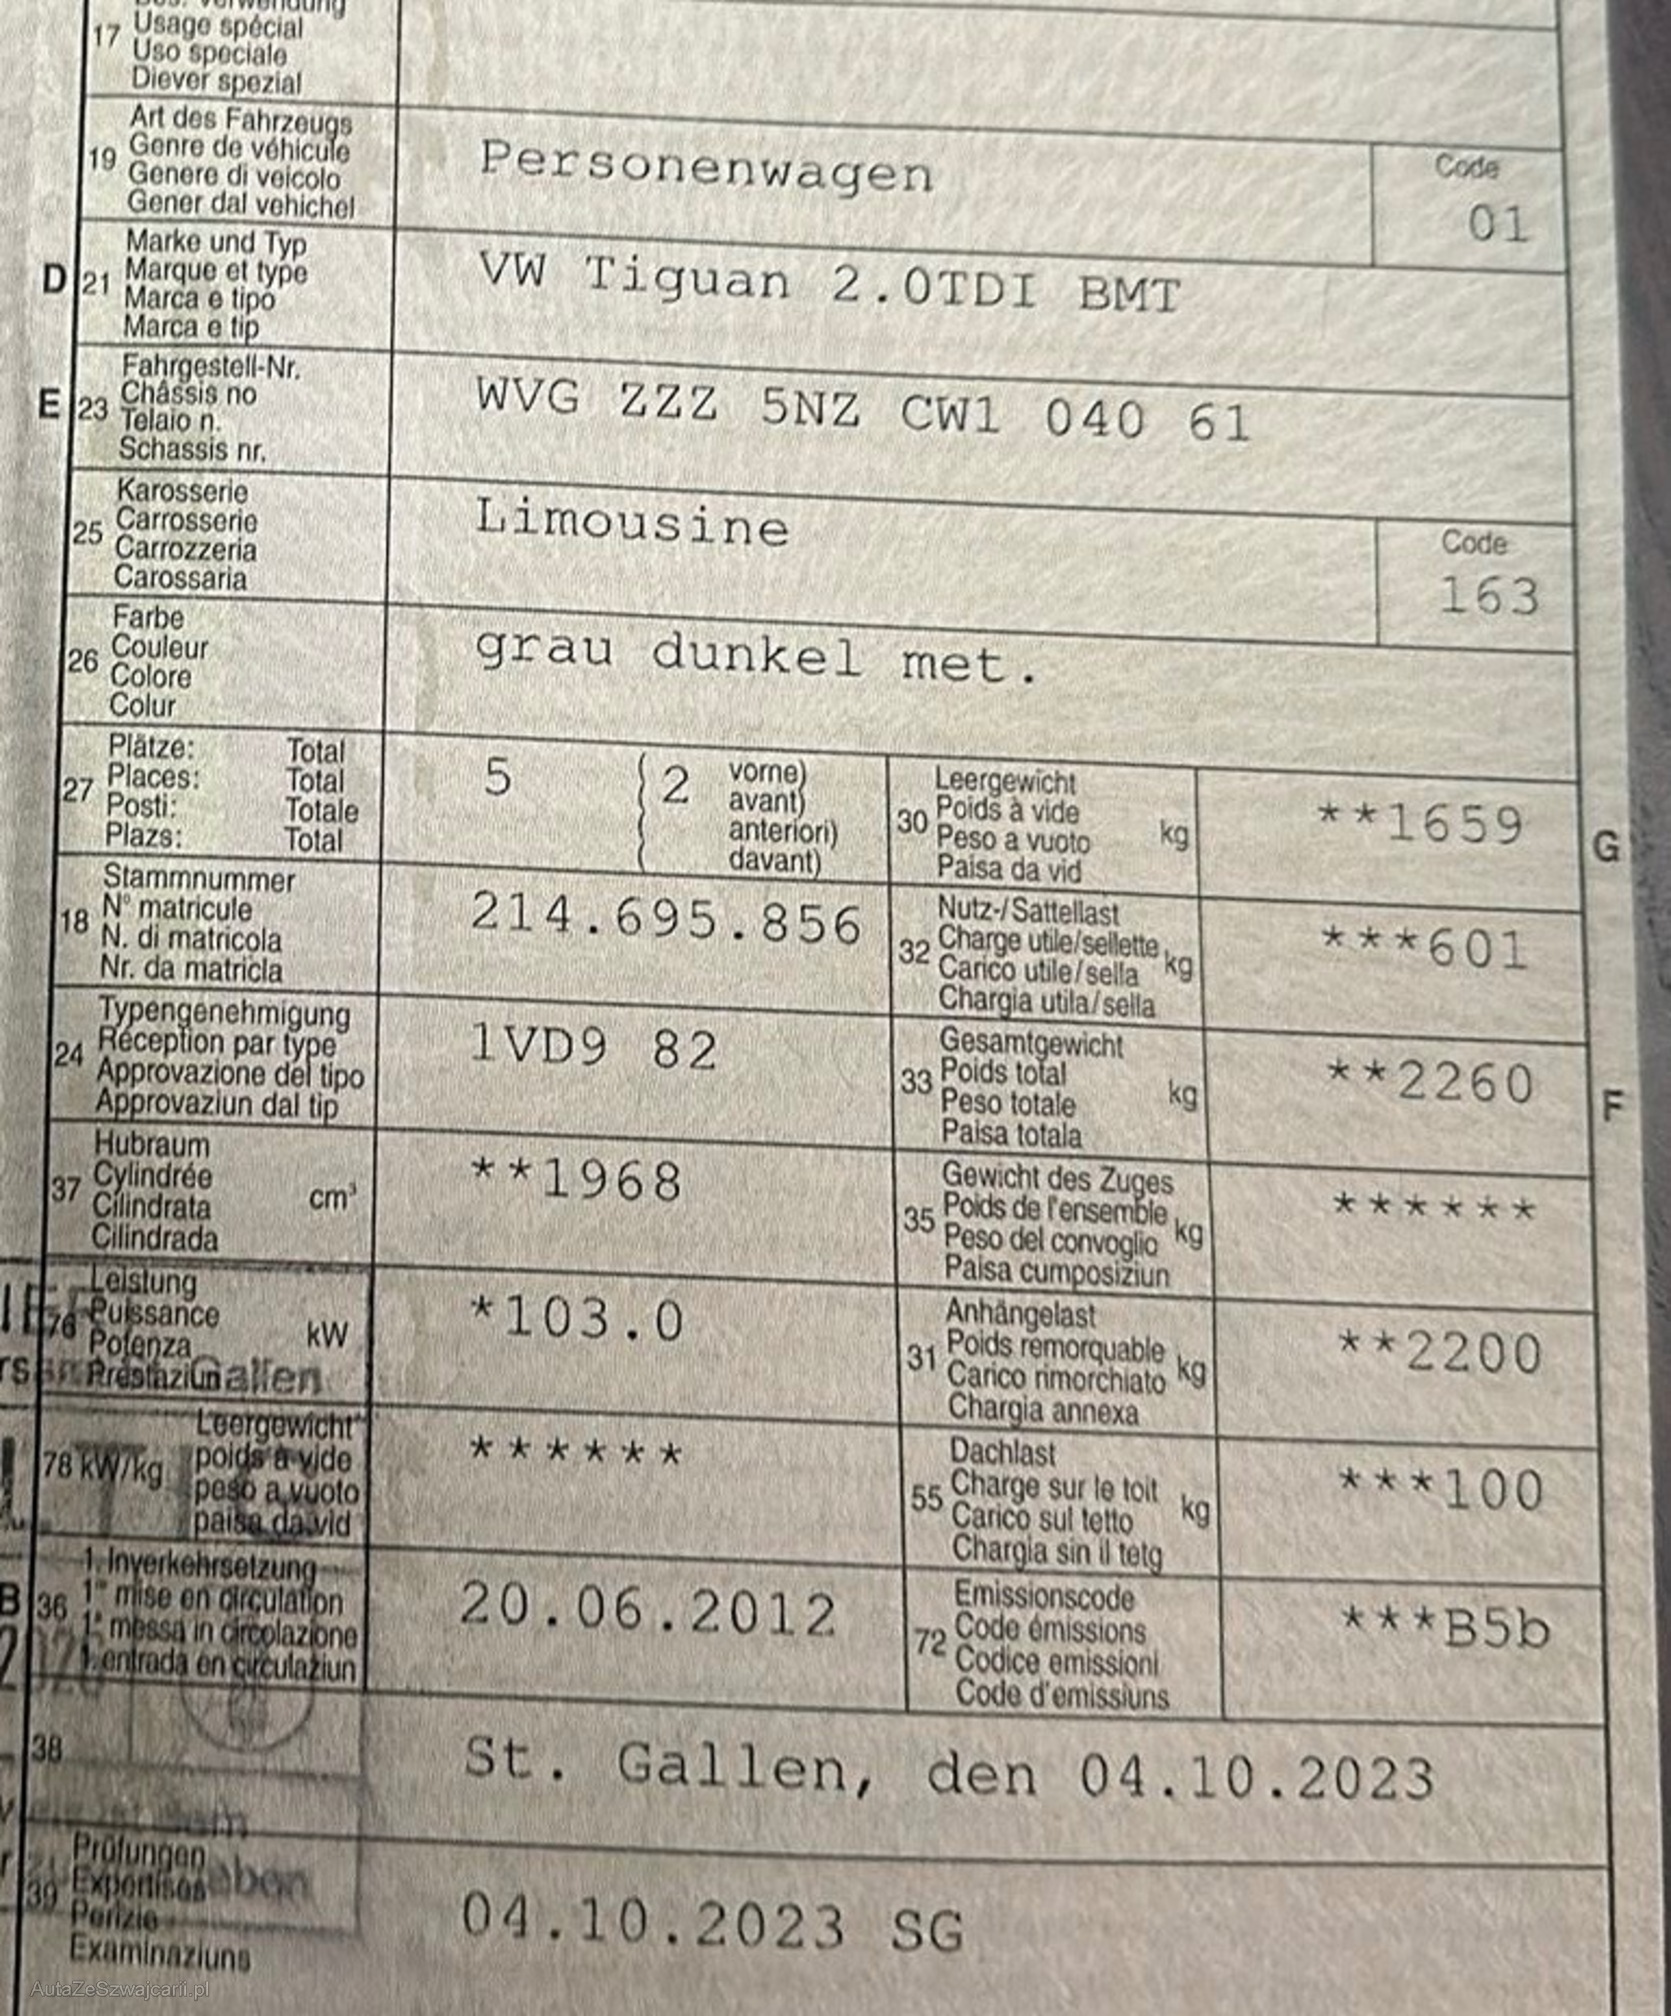 17 Usage spécial
Uso speciale
Diever spezial
Art des Fahrzeugs
19 Genre de véhicule
Genere di veicolo
Gener dal vehichel
Personenwagen
Code
01
Marke und Typ
D 21 Marque et type
Marca e tipo
Marca e tip
VW Tiguan 2.0TDI BMT
Fahrgestell-Nr.
E 23 Châssis no
Telaio n.
Schassis nr.
WVG ZZZ 5NZ CW1 040 61
Karosserie
25 Carrosserie
Carrozzeria
Carossaria
Limousine
Code
163
Farbe
26 Couleur
Colore
Colur
grau dunkel met.
Plätze: Total
27 Places: Total
Posti: Totale
Plazs: Total
5 2 vorne)
avant)
anteriori)
davant)
Leergewicht
30 Poids à vide
Peso a vuoto kg
Paisa da vid
**1659
G
Stammnummer
18 N° matricule
N. di matricola
Nr. da matricla
214.695.856
Nutz-/Sattellast
32 Charge utile/sellette
Carico utile/sella kg
Chargia utila/sella
***601
Typengenehmigung
24 Réception par type
Approvazione del tipo
Approvaziun dal tip
1VD9 82
Gesamtgewicht
33 Poids total
Peso totale kg
Paisa totala
**2260
F
Hubraum
37 Cylindrée
Cilindrata cm³
Cilindrada
**1968
Gewicht des Zuges
35 Poids de l'ensemble
Peso del convoglio kg
Paisa cumposiziun
******
Leistung
76 Puissance
Potenza kW
Prestaziun
Gallen
*103.0
Anhängelast
31 Poids remorquable
Carico rimorchiato kg
Chargia annexa
**2200
Leergewicht
78 kW/kg poids à vide
peso a vuoto
paisa da vid
******
Dachlast
55 Charge sur le toit
Carico sul tetto kg
Chargia sin il tetg
***100
1. Inverkehrsetzung
B 36 1re mise en circulation
1a messa in circolazione
1. entrada en circulaziun
20.06.2012
Emissionscode
72 Code émissions
Codice emissioni
Code d'emissiuns
***B5b
38
St. Gallen, den 04.10.2023
Prüfungen
39 Expertises
Perizie
Examinaziuns
04.10.2023 SG
AutaZeSzwajcarii.pl